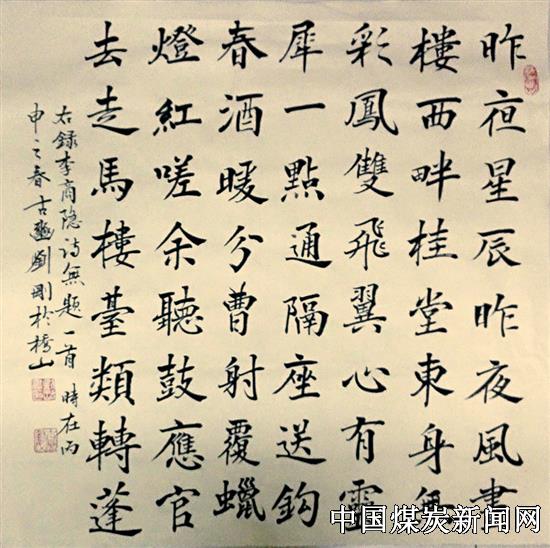 昨亱星辰昨夜風畫
樓西畔桂堂東身無
彩鳳雙飛翼心有靈
犀一點通隔座送鈎
春酒暖分曹射覆蠟
燈紅嗟余聽鼓應官
去走馬樓臺類轉蓬
右録李商隐詩無題一首 時在丙
申之春古豳劉剛於橋山
中国煤炭新闻网